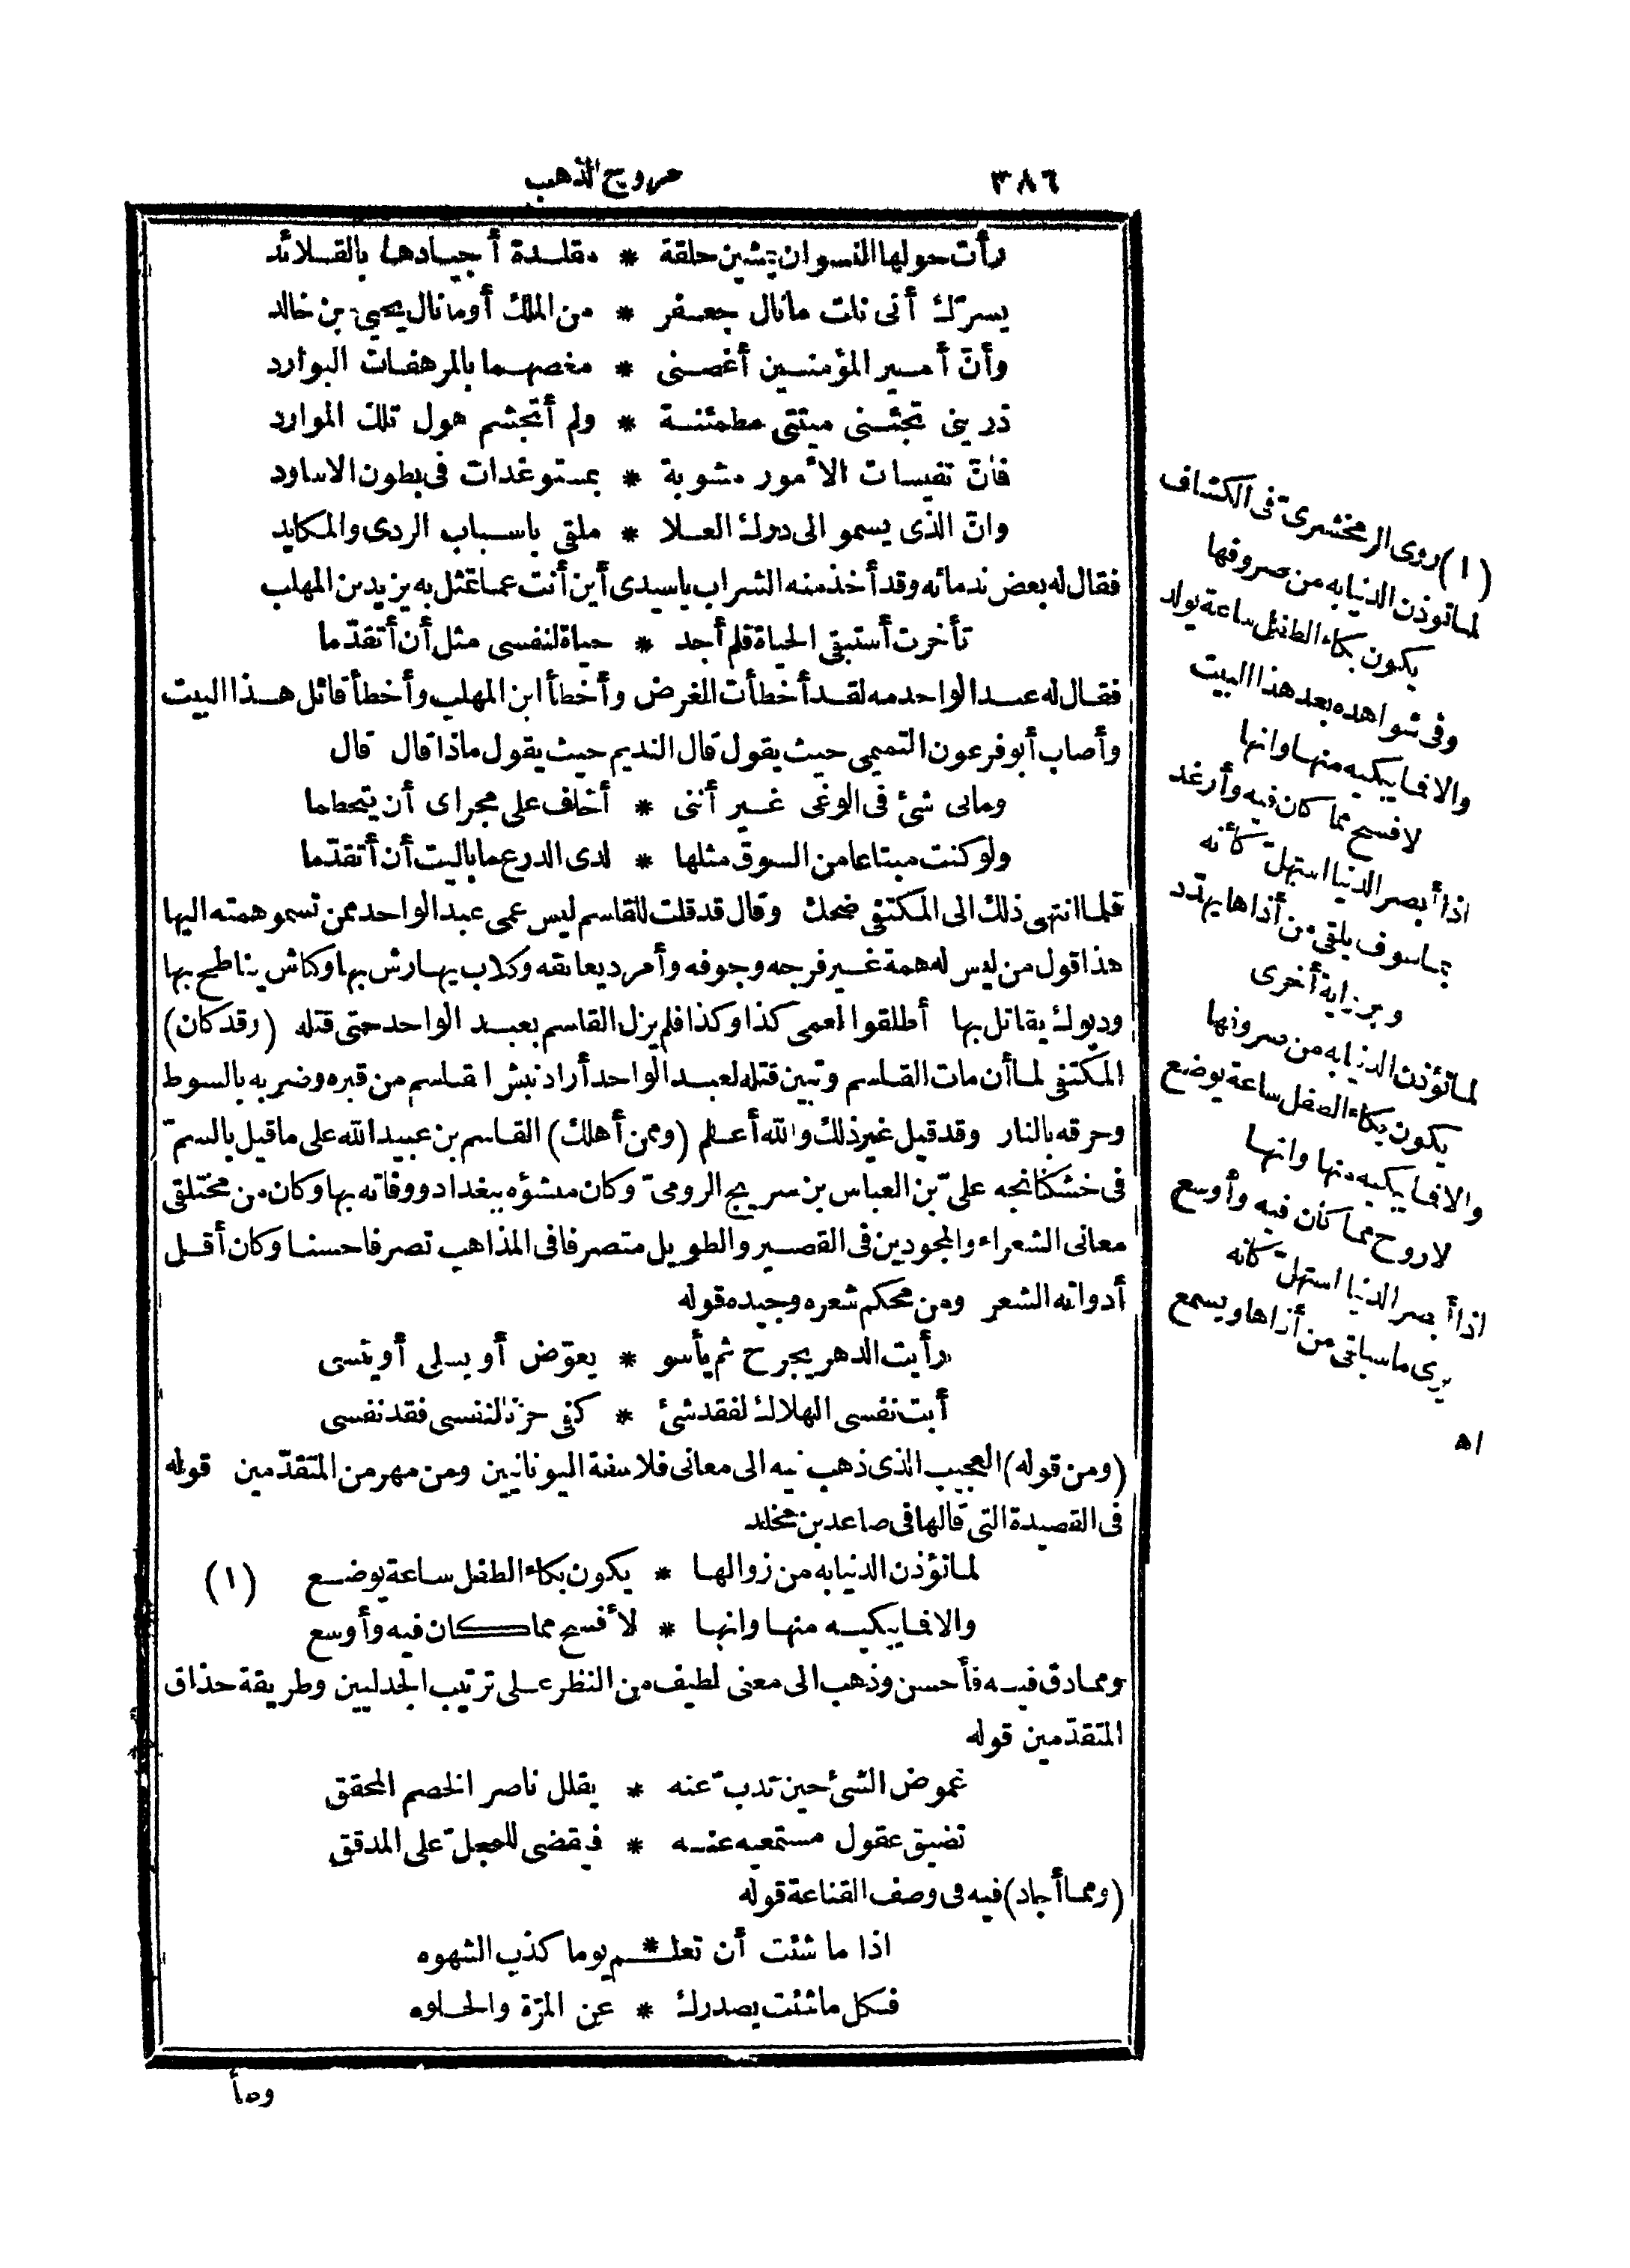 ٣٨٦
مروج الذهب
رأت حولها النسوان يمشين حلقة * مقلدة أجيادها بالقلائد
يسرّك أنى نلت مانال جعفر * من الملك أومانال يحيى بن خالد
وأنّ أمير المؤمنين أغصنى * مغصهما بالمرهفات البوارد
ذرينى تجئنى ميتتى مطمئنة * ولم أتجشم هول تلك الموارد
فانّ نفيسات الأمور مشوبة * بمستوغدات فى بطون الاساود
وانّ الذى يسمو الى درك العلا * ملقى باسباب الردى والمكايد
فقال له بعض ندمائه وقد أخذ منه الشراب ياسيدى أين أنت عما تمثل به يزيد بن المهلب
تأخرت أستبقى الحياة فلم أجد * حياة لنفسى مثل أن أتقدّما
فقال له عبد الواحد مه لقد أخطأت الغرض وأخطأ ابن المهلب وأخطأ قائل هذا البيت
وأصاب أبو فرعون التميمى حيث يقول قال النديم حيث يقول ماذا قال قال
ومابى شئ فى الوغى غير أننى * أخاف على مجراى أن يتحطما
ولو كنت مبتاعا من السوق مثلها * لدى الدرع ما باليت أن أتقدّما
فلما انتهى ذلك الى المكتفى ضحك وقال قد قلت للقاسم ليس عمى عبد الواحد ممن تسمو همته اليها
هذا قول من ليس له همة غير فرجه وجوفه وأمرد يعانقه وكلاب يهارش بها وكباش يناطح بها
وديوك يقاتل بها أطلقوا لعمى كذا وكذا فلم يزل القاسم بعبد الواحد حتى قتله (وقد كان)
المكتفى لما أن مات القاسم وتبين قتله لعبد الواحد أراد نبش القاسم من قبره وضربه بالسوط
وحرقه بالنار وقد قيل غير ذلك والله أعلم (وممن أهلك) القاسم بن عبيد الله على ماقيل بالسمّ
فى خشكنانجه علىّ بن العباس بن سريج الرومىّ وكان منشؤه ببغداد ووفاته بها وكان من مختلقى
معانى الشعراء والمجودين فى القصير والطويل متصرفا فى المذاهب تصرفا حسنا وكان أقل
أدواته الشعر ومن محكم شعره وجيده قوله
رأيت الدهر يجرح ثم يأسو * يعوّض أو يسلى أو ينسى
أبت نفسى الهلاك لفقد شئ * كفى حزنا لنفسى فقد نفسى
(ومن قوله) العجيب الذى ذهب فيه الى معانى فلاسفة اليونانيين ومن مهر من المتقدّمين قوله
فى القصيدة التى قالها فى صاعد بن مخلد
لما تؤذن الدنيا به من زوالها * يكون بكاء الطفل ساعة يوضع (١)
والا فما يبكيه منها وانها * لأفسح مما كان فيه وأوسع
ومما دق فيه فأحسن وذهب الى معنى لطيف من النظر على ترتيب الجدليين وطريقة حذاق
المتقدّمين قوله
غموض الشئ حين تذبّ عنه * يقلل ناصر الخصم المحقق
تضيق عقول مستمعيه عنه * فيقضى للمجلّ على المدقق
(ومما أجاد) فيه فى وصف القناعة قوله
اذا ما شئت أن تعلم * يوما كذب الشهوه
فكل ماشئت يصدرك * عن المرّة والحلوه
وطأ
(١) روى الزمخشرىّ فى الكشاف
لما تؤذن الدنيا به من صروفها
يكون بكاء الطفل ساعة يولد
وفى شواهده بعد هذا البيت
والا فما يبكيه منها وانها
لافسح مما كان فيه وأرغد
اذا أبصر الدنيا استهلّ كأنه
بما سوف يلقى من أذاها يهدّد
وبرزاية أخرى
لما تؤذن الدنيا به من صروفها
يكون بكاء الطفل ساعة يوضع
والا فما يبكيه منها وانها
لاروح مما كان فيه وأوسع
اذا أبصر الدنيا استهلّ كأنه
يرى ما سيلقى من أذاها ويسمع
اه